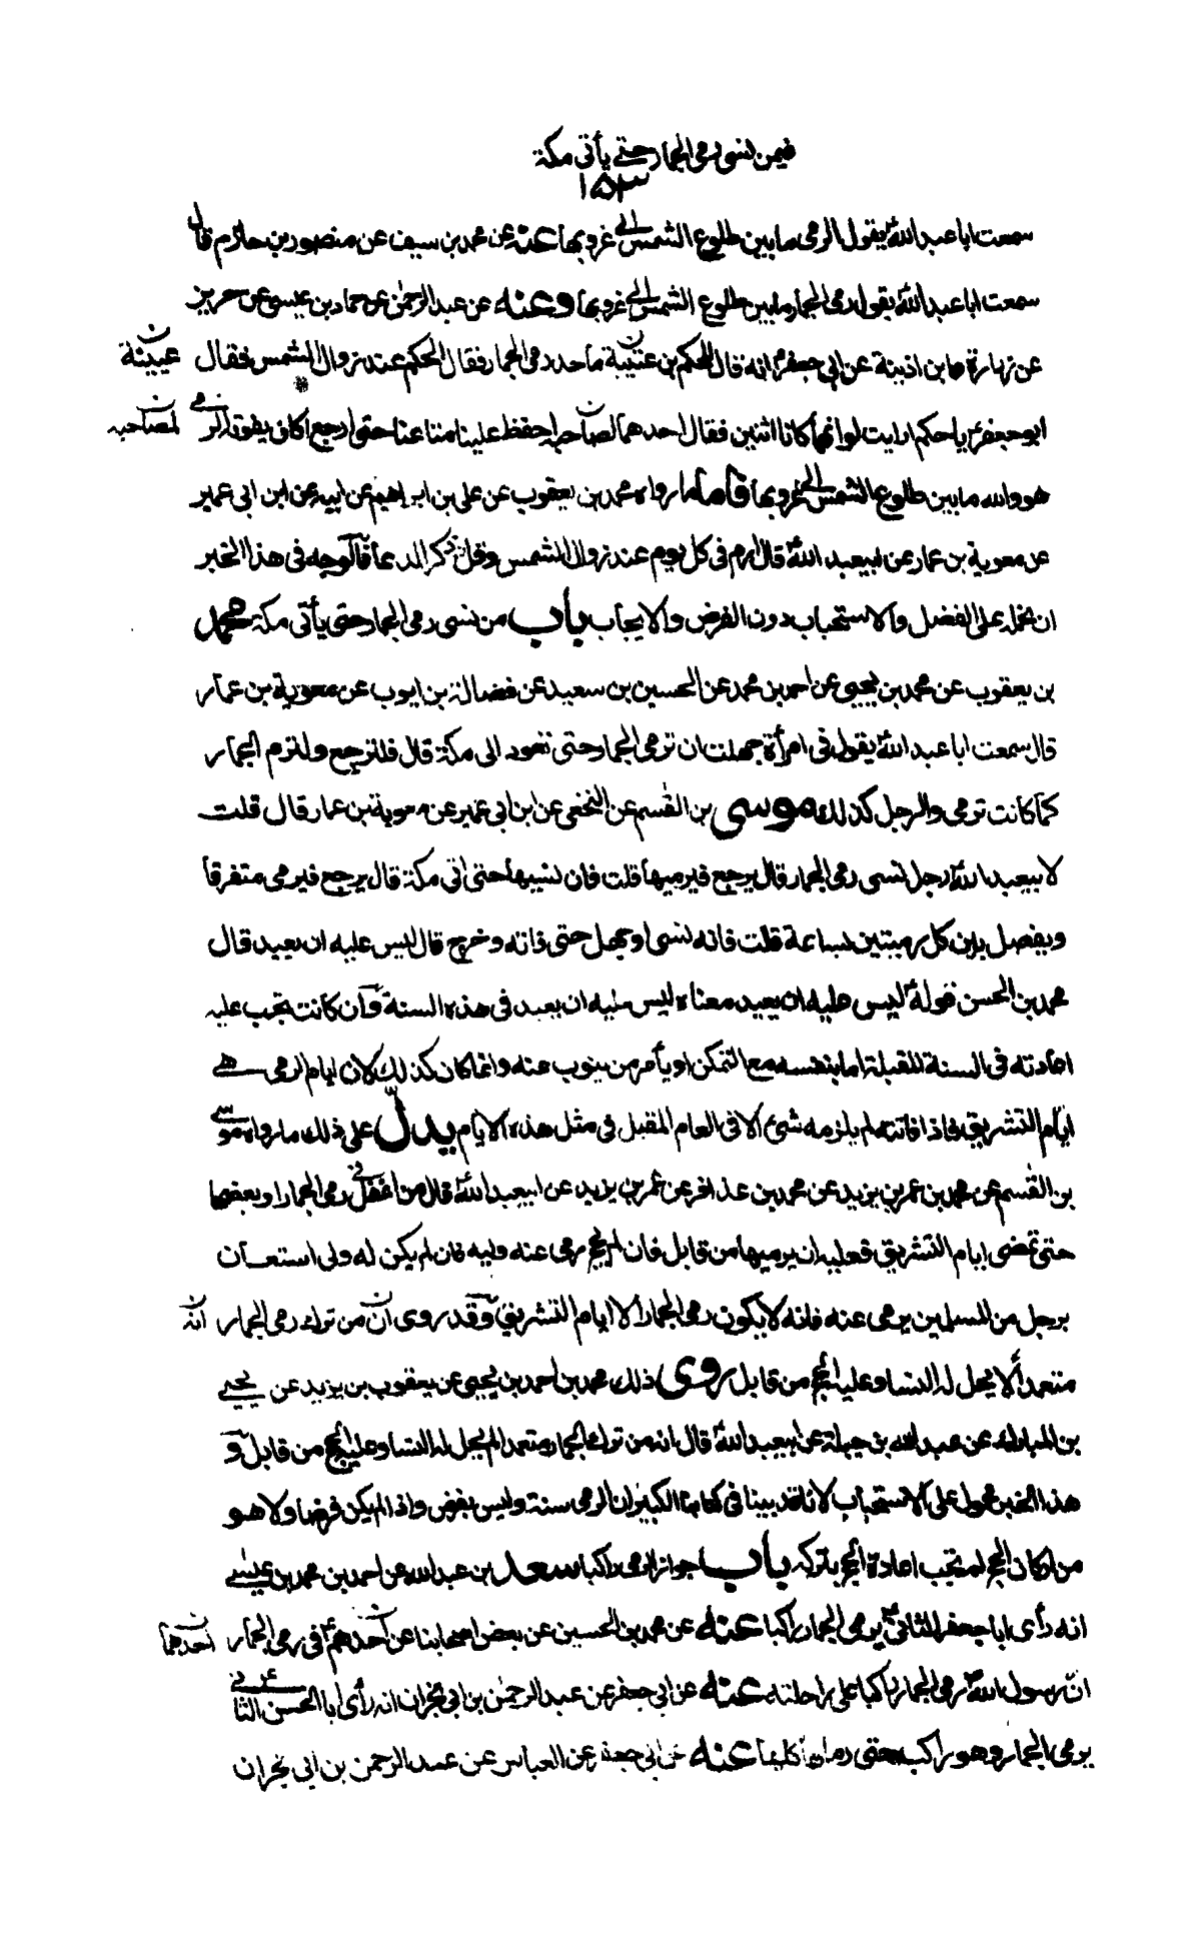 فيمن نسى رمى الجمار حتى يأتى مكة
١٥٣
سمعت ابا عبد الله ع يقول الرمى ما بين طلوع الشمس الى غروبها عنه عن محمد بن سيف عن منصور بن حازم قال
سمعت ابا عبد الله ع يقول رمى الجمار ما بين طلوع الشمس الى غروبها وعنه عن عبد الرحمن عن حماد بن عيسى عن حريز
عن زرارة وابن اذينة عن ابى جعفر ع انه قال للحكم بن عتيبة ما حد رمى الجمار فقال الحكم عند زوال الشمس فقال
عيينة ن
ابو جعفر ع يا حكم ارايت لو انهما كانا اثنين فقال احدهما لصاحبه احفظ علينا متاعنا حتى ارجع اكان يفوته الرمى
لصاحبه ن
هو والله ما بين طلوع الشمس الى غروبها فاما ما رواه محمد بن يعقوب عن على بن ابراهيم عن ابيه عن ابن ابى عمير
عن معوية بن عمار عن ابيعبد الله ع قال ارم فى كل يوم عند زوال الشمس وقل كر الدعا فالوجه فى هذا الخبر
ان نحمله على الفضل والاستحباب دون الفرض والايجاب باب من نسى رمى الجمار حتى يأتى مكة محمد
بن يعقوب عن محمد بن يحيى عن احمد بن محمد عن الحسين بن سعيد عن فضالة بن ايوب عن معوية بن عمار
قال سمعت ابا عبد الله ع يقول فى امرأة جهلت ان ترمى الجمار حتى تعود الى مكة قال فلترجع ولترم الجمار
كما كانت ترمى والرجل كذلك موسى بن القسم عن النخعى عن ابن ابى عمير عن معوية بن عمار قال قلت
لابيعبد الله ع رجل نسى رمى الجمار قال يرجع فيرميها قلت فان نسيها حتى اتى مكة قال يرجع فيرمى متفرقا
ويفصل بين كل رميتين بساعة قلت فانه نسى او جهل حتى فاته وخرج قال ليس عليه ان يعيد قال
محمد بن الحسن قوله ع ليس عليه ان يعيد معناه ليس عليه ان يعيد فى هذه السنة وان كانت تجب عليه
اعادته فى السنة المقبلة اما بنفسه مع التمكن او يأمر من ينوب عنه وانما كان كذلك لان ايام الرمى هى
ايام التشريق فاذا فاتته لم يلزمه شئ الا فى العام المقبل فى مثل هذه الايام يدل على ذلك ما رواه موسى
بن القسم عن محمد بن عمر بن يزيد عن محمد بن عذافر عن عمر بن يزيد عن ابيعبد الله ع قال من اغفل رمى الجمار او بعضها
حتى تمضى ايام التشريق فعليه ان يرميها من قابل فان لم يحج رمى عنه وليه فان لم يكن له ولى استعان
برجل من المسلمين يرمى عنه فانه لا يكون رمى الجمار الا ايام التشريق وقد روى ان من ترك رمى الجمار
انه ن
متعمدا لا يحل له النسا وعليه الحج من قابل روى ذلك محمد بن احمد بن يحيى عن يعقوب بن يزيد عن يحيى
بن المبارك عن عبد الله بن جبلة عن ابيعبد الله ع قال انه من ترك الجمار متعمدا لم يحل له النسا وعليه الحج من قابل و
هذا الخبر محمول على الاستحباب لانا قد بينا فى كتابنا الكبير ان الرمى سنة وليس بفرض واذا لم يكن فرضا ولا هو
من اركان الحج لم تجب اعادة الحج بتركه باب جواز الرمى راكبا سعد بن عبد الله عن احمد بن محمد بن عيسى
انه رأى ابا جعفر الثانى ع يرمى الجمار راكبا عنه عن محمد بن الحسين عن بعض اصحابنا عن احدهم ع فى رمى الجمار
احدهما ن
ان رسول الله ص رمى الجمار راكبا على راحلته عنه عن ابى جعفر عن عبد الرحمن بن ابى نجران انه رأى ابا الحسن الثانى
يرمى الجمار وهو راكب حتى رماها كلها عنه عن ابى جعفر عن العباس عن عبد الرحمن بن ابى نجران